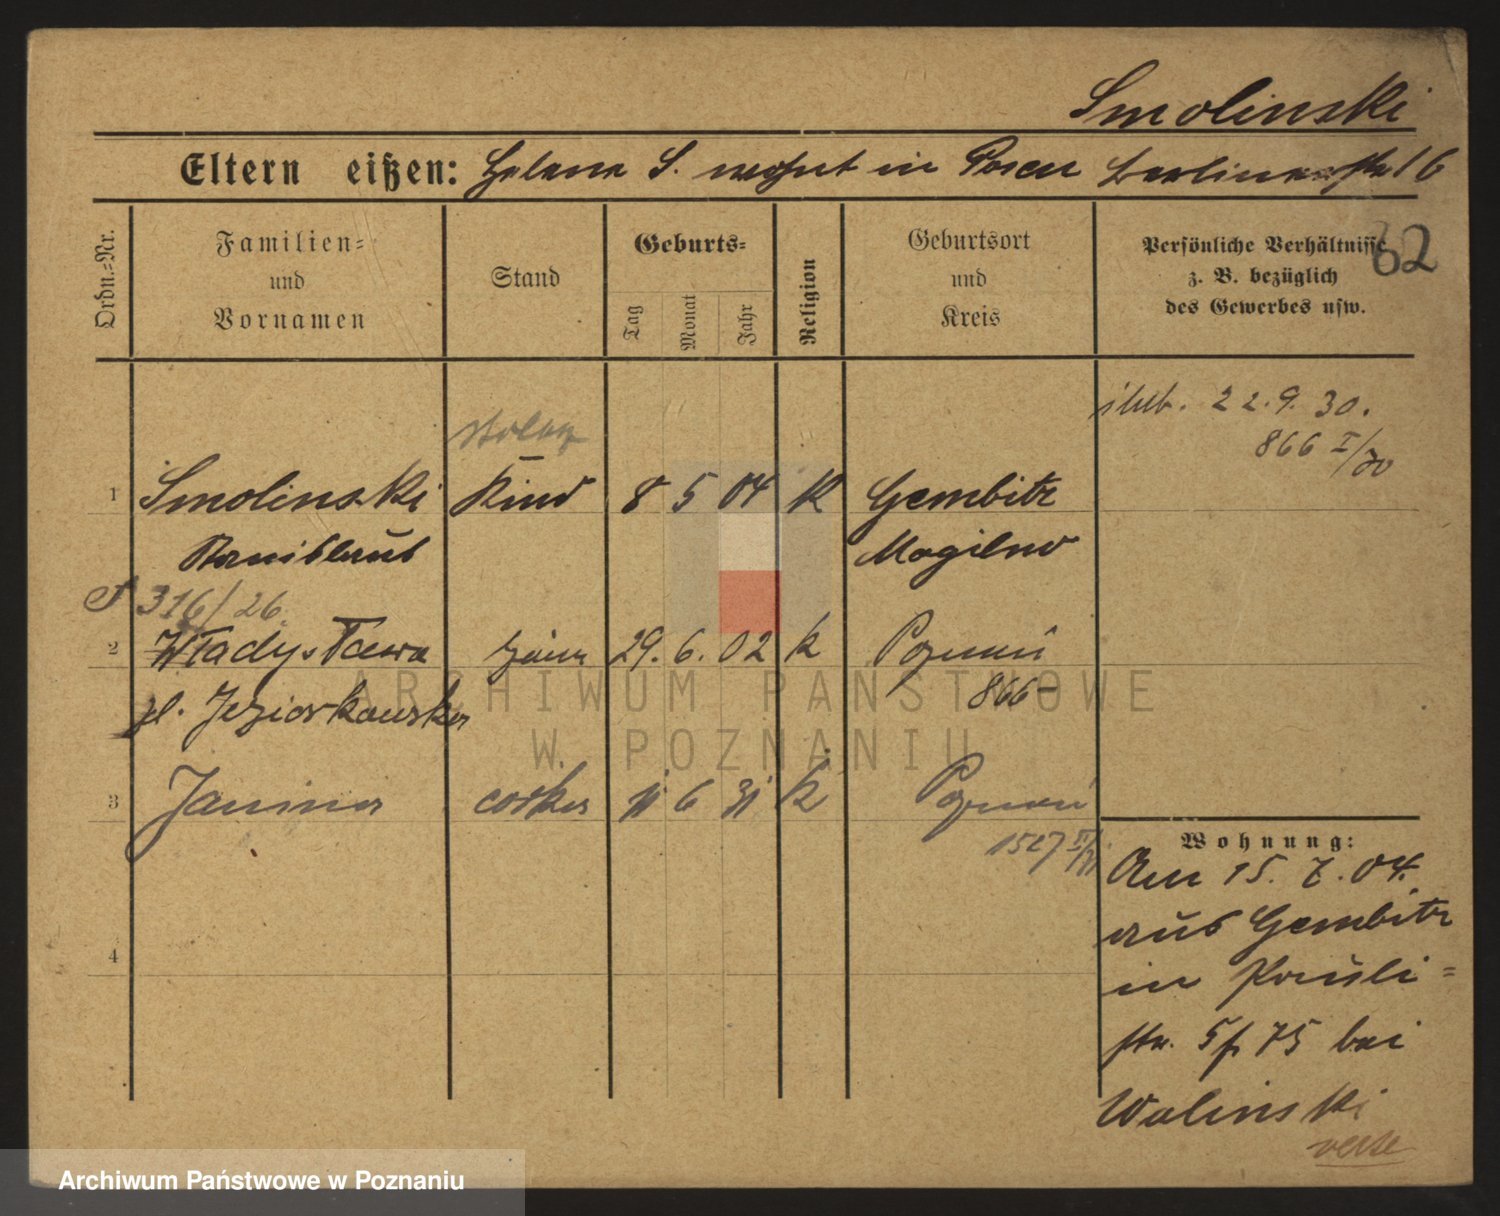 Smolinski
Eltern eißen: Helene S. wohnt in Posen Berlinerstr 16
Ordn.=Nr.
Familien=
und
Vornamen
Stand
Geburts=
Tag
Monat
Jahr
Religion
Geburtsort
und
Kreis
Persönliche Verhältnisse
z. B. bezüglich
des Gewerbes usw.
62
22.9.30.
866 I/30
stolarz
1 Smolinski Kind 8 5 04 K Gembitz
Stanislaus Mogilno
316/26
2 Władysława żona 29. 6. 02 k Poznań
866
zd. Jeziorkowska
3 Janina córka 6 31 k Poznań
1527
4
Wohnung:
Am 15. 7. 04.
aus Gembitz
in Pauli=
str. 5 75 bei
Wolinski
verte
ARCHIWUM PAŃSTWOWE
W POZNANIU
Archiwum Państwowe w Poznaniu